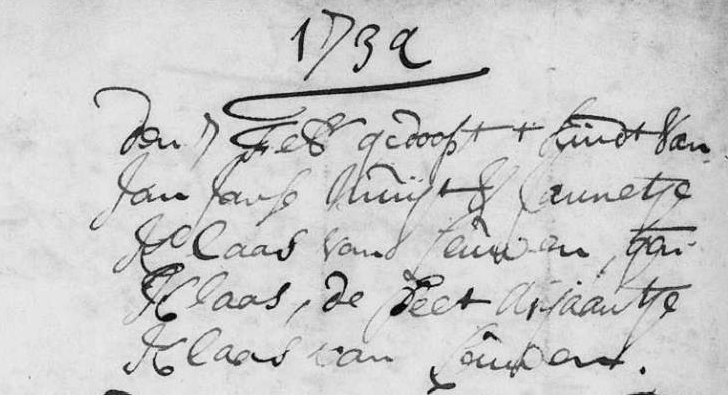 1732
den 7 Feb gedoopt t kindt van
Jan Janse & Jannetje
Klaas van Leuwen,
Klaas, de Peet Arjaantje
Klaas van Leuwen.